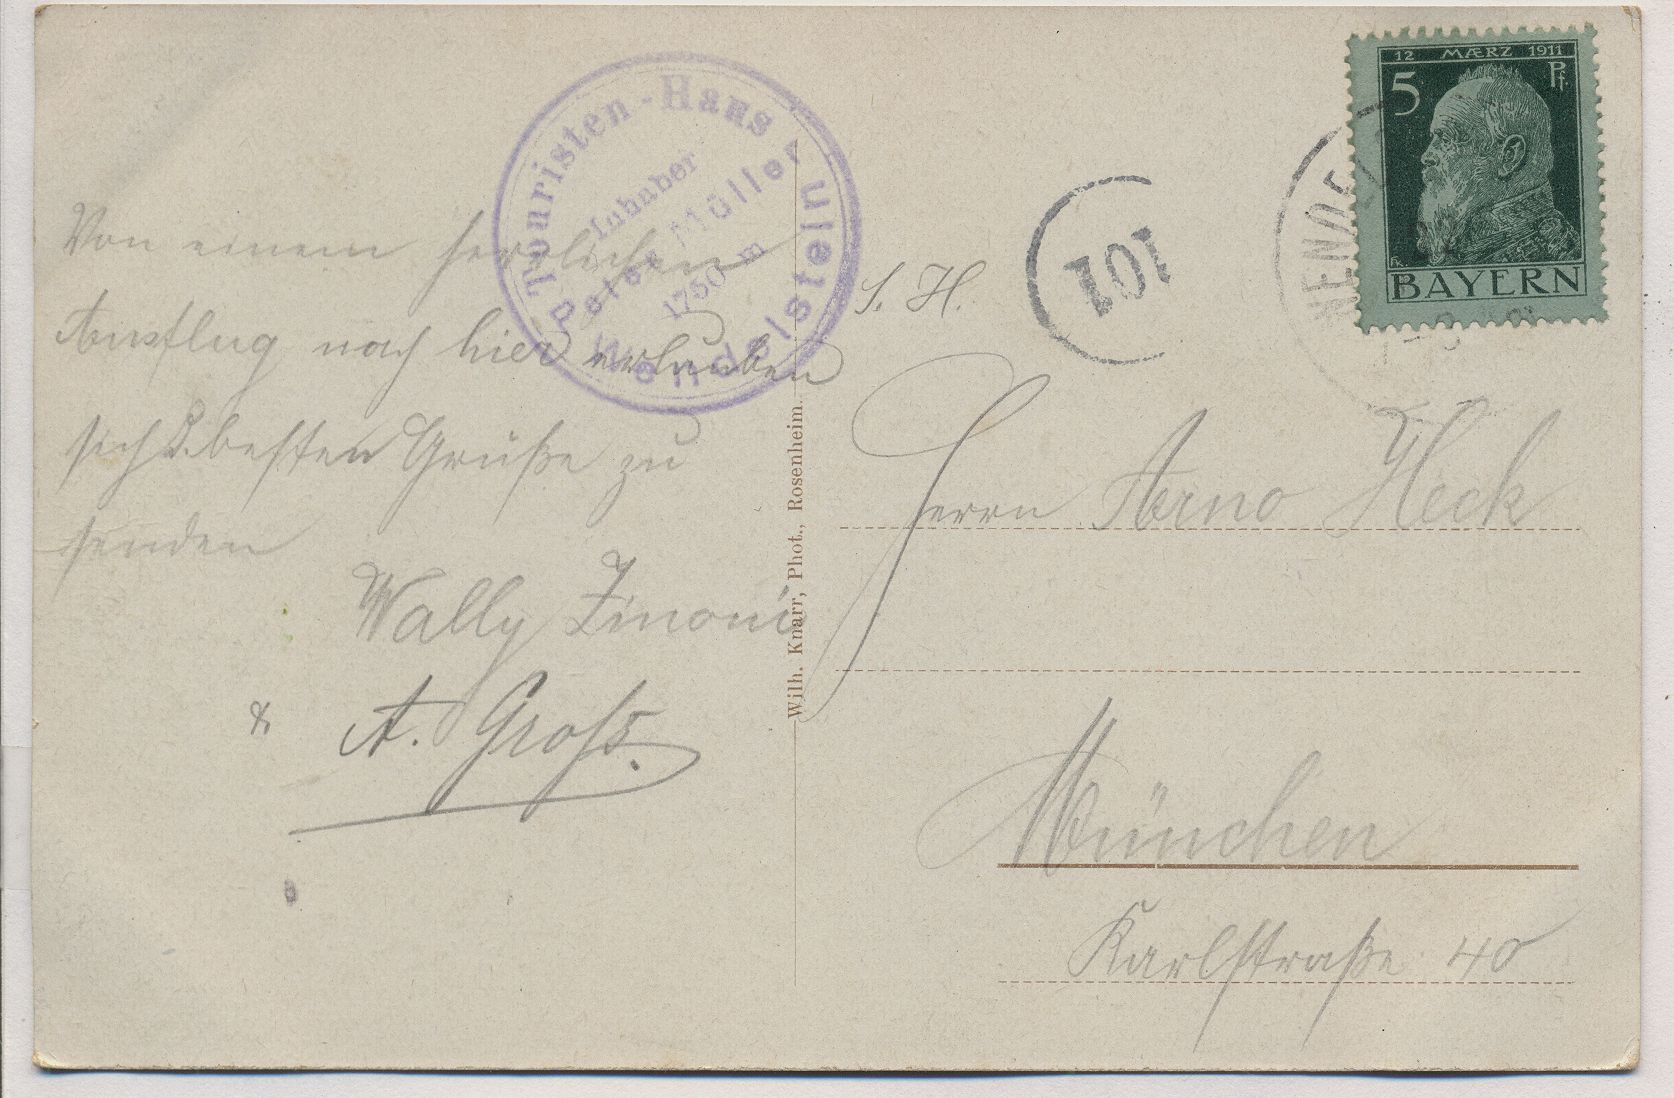 Touristen-Haus
Inhaber
Peter Müller
1750 m
Wendelstein
Von einem herrlichen
Ausflug nach hier erlauben
sich d. besten Grüße zu
senden
Wally
& A. Groß.
Wilh. Knarr, Phot., Rosenheim.
12 MÆRZ 1911
5 Pf.
BAYERN
101
S. H.
Herrn Arno Heck
München
Karlstraße 40